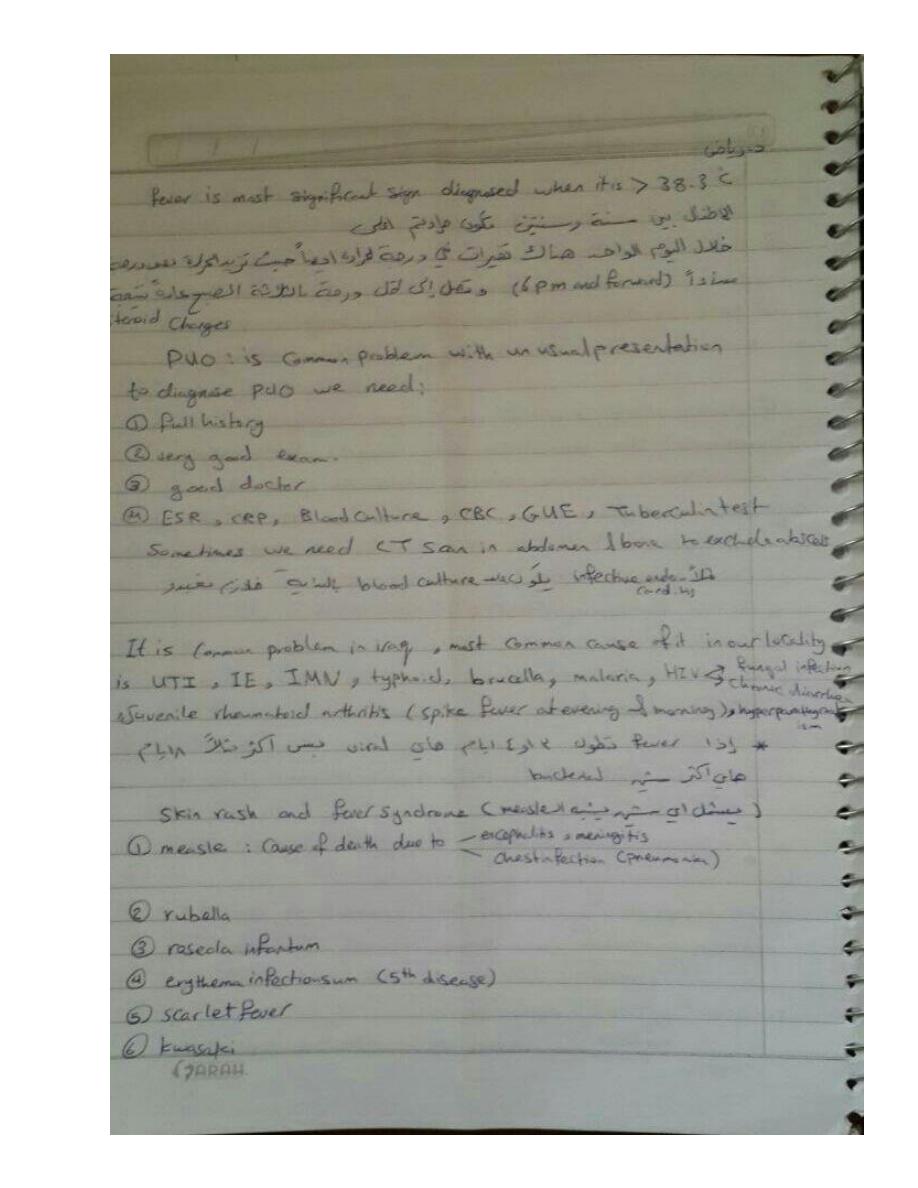 د. رياض
fever is most significant sign diagnosed when it is > 38.3 C
الاطفال بين سنة وسنتين تكون حرارتهم اعلى
خلال اليوم الواحد هناك تغيرات في درجة الحرارة ايضاً حيث تزيد الحرارة نصف درجة
مساءاً (6 pm and forward) وتصل إلى اقل درجة بالثلاثة الصبح عادةً نتيجة
teroid Changes
PUO : is Common problem with un usual presentation
to diagnose PUO we need :
① full history
② very good exam.
③ good doctor
④ ESR , CRP , Blood Culture , CBC , GUE , Tuberculin test
Sometimes we need CT Scan in abdomen & bone to exclude abscess
مثلاً infective endo-carditis يكون blood culture بالبداية فلازم
It is Common problem in iraq , most common cause of it in our locality
is UTI , IE , IMN , typhoid , brucella , malaria , HIV fungal infection chronic diarrhea
Juvenile rheumatoid arthritis (spike fever at evening & morning) ,
* إذا fever تطول ٣ او ٤ ايام هاي viral بس اكثر مثلاً ١٨ ايام
هاي اكثر شي bacterial
Skin rash and fever syndrome (يشمل اي شي يشبه الـ measle)
① measle : Cause of death due to encephalitis , meningitis
chest infection (pneumonia)
② rubella
③ raseola infantum
④ erythema infectionsum (5th disease)
⑤ scarlet fever
⑥ kwasaki
SARAH